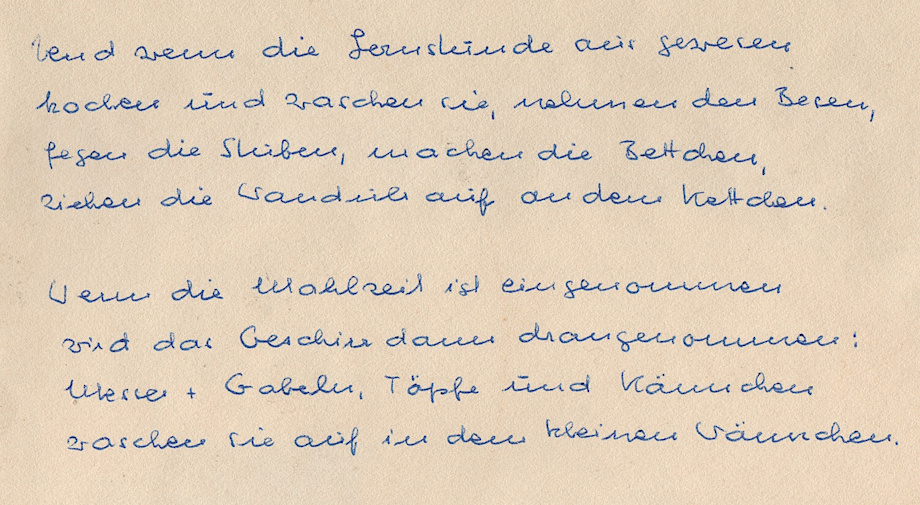 Und wenn die Lernstunde aus gewesen
kochen und waschen sie, nehmen den Besen,
fegen die Stuben, machen die Bettchen,
ziehen die Wanduhr auf an dem Kettchen.
Wenn die Mahlzeit ist eingenommen
wird das Geschirr dann drangenommen:
Messer + Gabeln, Töpfe und Kännchen
waschen sie auf in dem kleinen Wännchen.